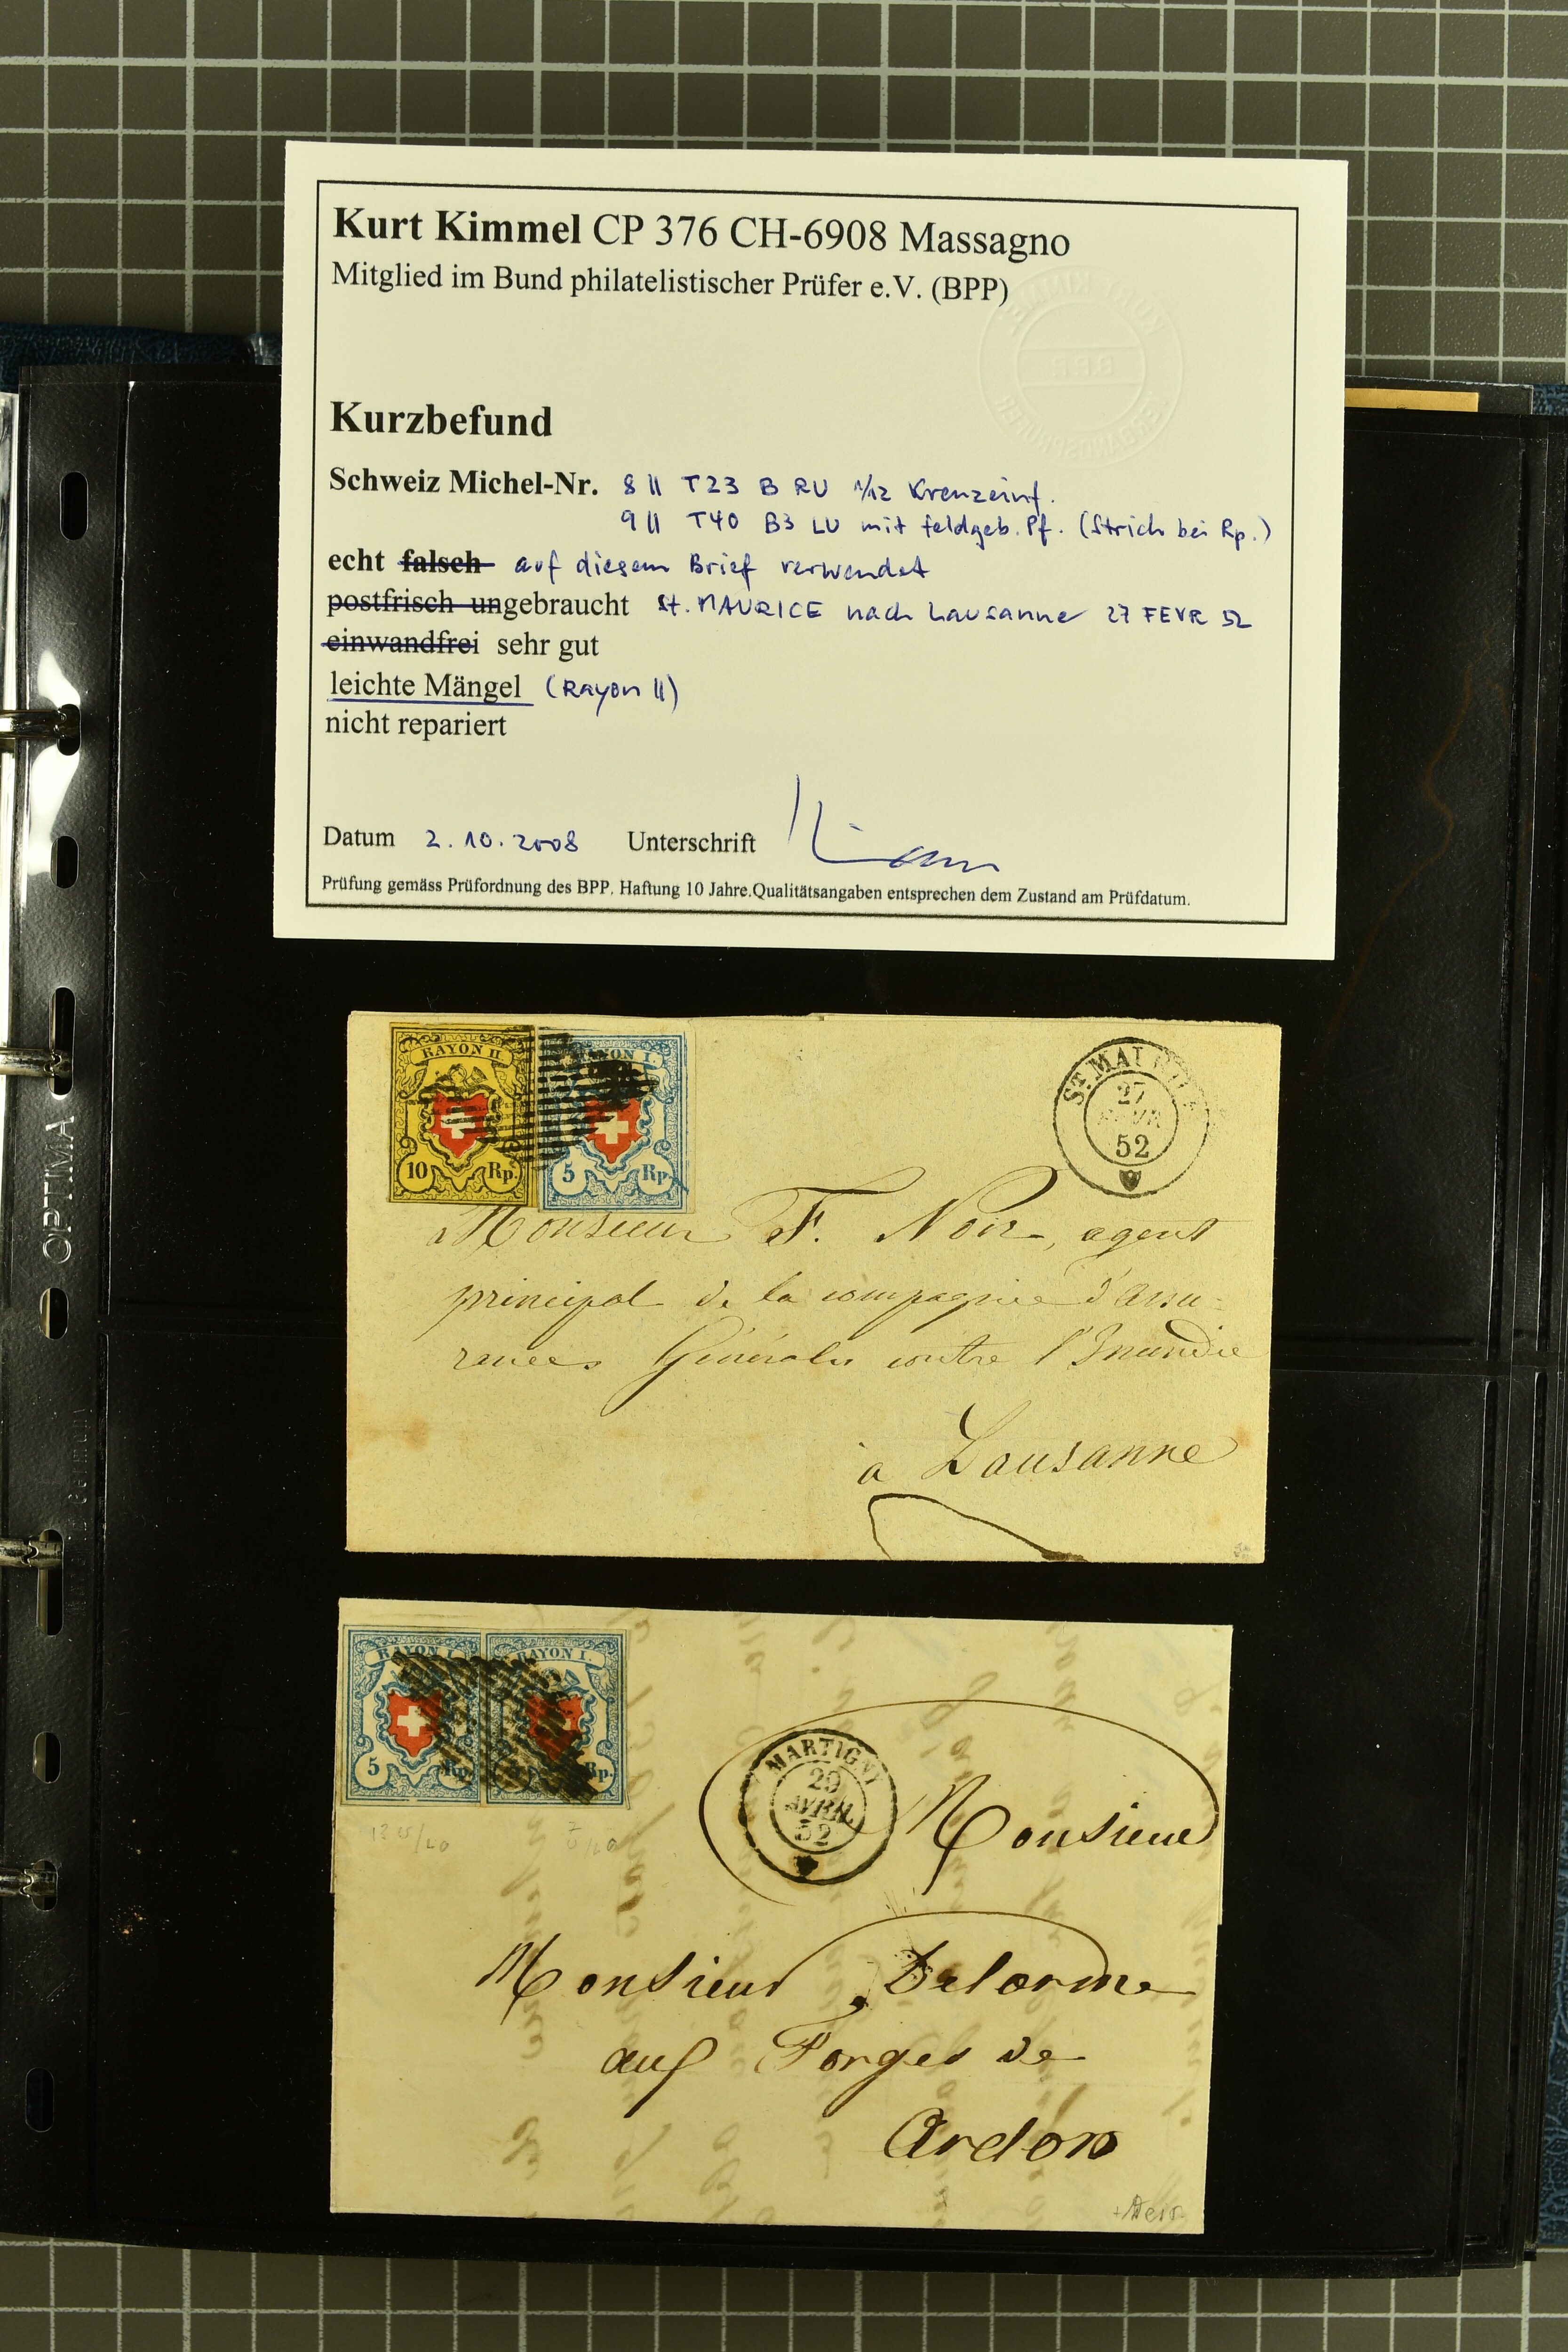 Kurt Kimmel CP 376 CH-6908 Massagno
Mitglied im Bund philatelistischer Prüfer e.V. (BPP)
Kurzbefund
Schweiz Michel-Nr. 8 II T23 B RU 1/12 Kreuzeinf.
9 II T40 B3 LU mit feldgeb. Pf. (Strich bei Rp.)
echt falsch auf diesem Brief verwendet
postfrisch ungebraucht St. MAURICE nach Lausanne 27 FEVR 52
einwandfrei sehr gut
leichte Mängel (Rayon II)
nicht repariert
Datum 2.10.2008 Unterschrift
Prüfung gemäss Prüfordnung des BPP. Haftung 10 Jahre.Qualitätsangaben entsprechen dem Zustand am Prüfdatum.
OPTIMA
RAYON II
10 Rp.
RAYON I.
5 Rp.
27
52
Monsieur F. Noir, agent
principal de la compagnie d'assu-
rances Générales contre l'Incendie
à Lausanne
RAYON I.
5 Rp.
RAYON I.
Rp.
MARTIGNY
29
AVRIL
52
Monsieur
Monsieur Delorme
aux Forges de
Ardon